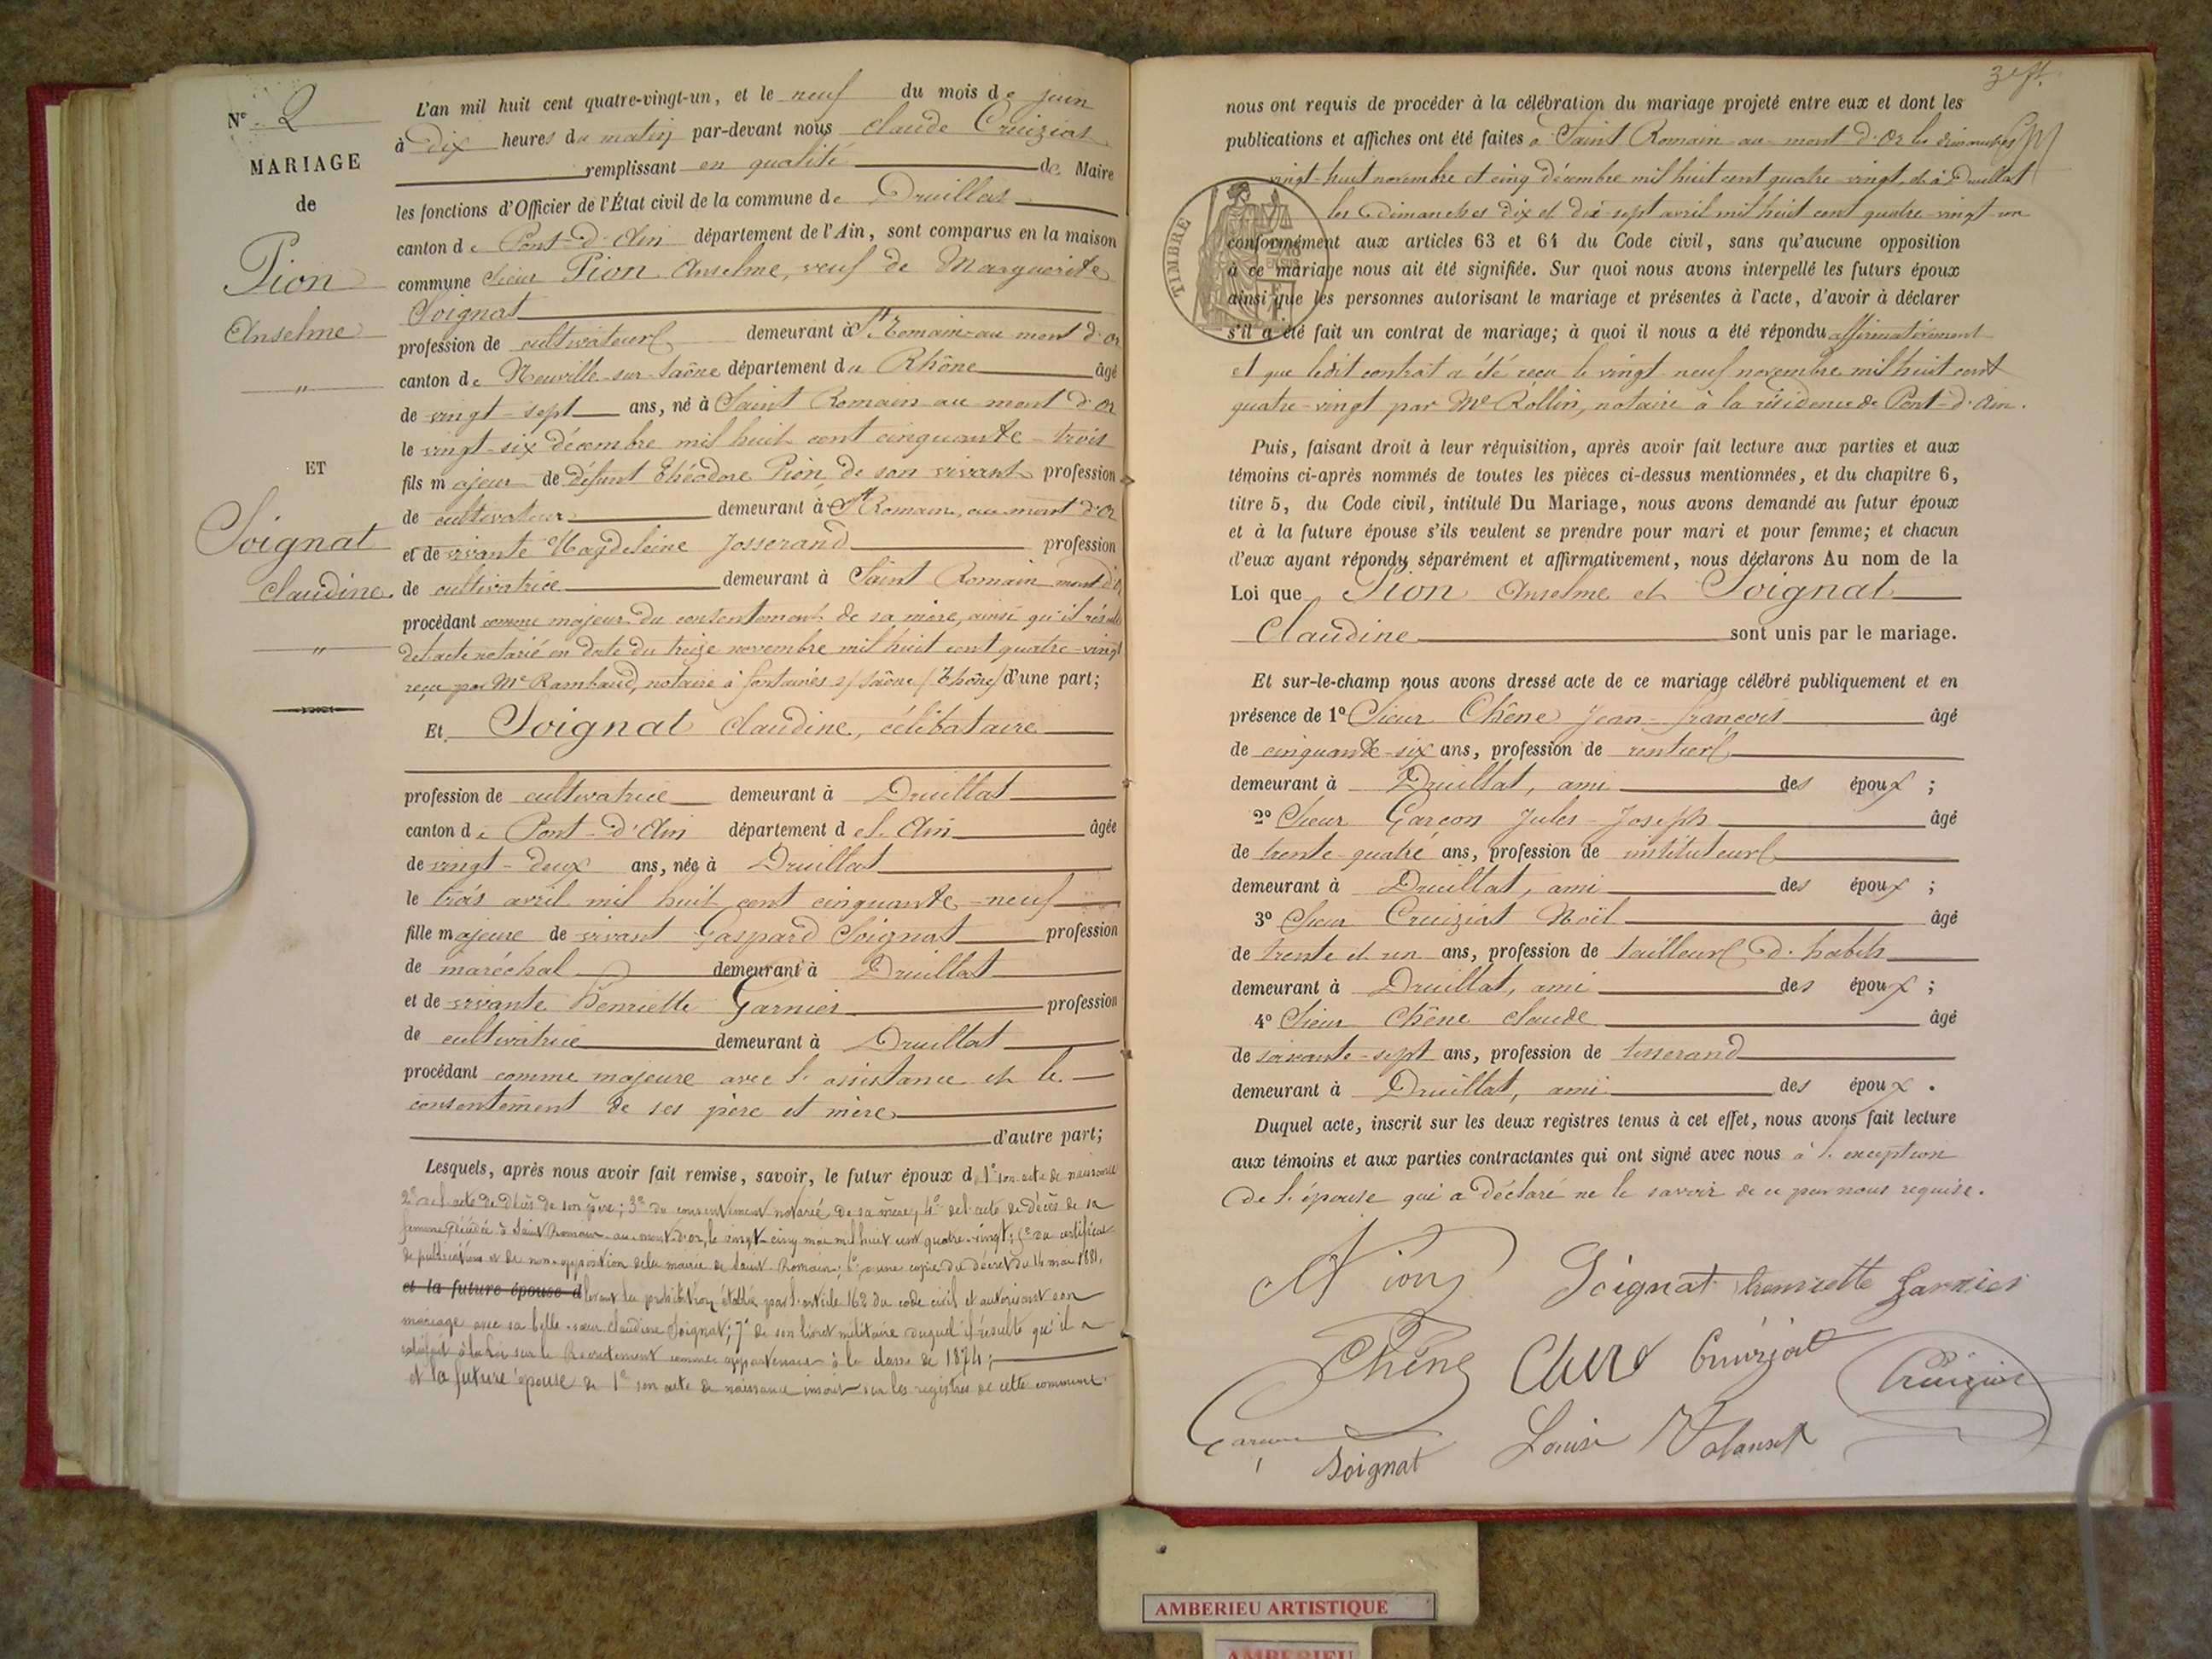 N° 2
MARIAGE
de
Pion
Anselme
"
ET
Soignat
Claudine.
"
L'an mil huit cent quatre-vingt-un, et le neuf du mois de juin
à dix heures du matin par-devant nous Claude Cruiziat
remplissant en qualité de Maire
les fonctions d'Officier de l'État civil de la commune de Druillat
canton de Pont-d'Ain département de l'Ain, sont comparus en la maison
commune sieur Pion Anselme, veuf de Marguerite
Soignat
profession de cultivateur demeurant à St Romain au mont d'or
canton de Neuville-sur-Saône département du Rhône âgé
de vingt-sept ans, né à Saint Romain au mont d'or
le vingt-six décembre mil huit cent cinquante-trois
fils majeur de défunt Théodore Pion, de son vivant profession
de cultivateur demeurant à St Romain, au mont d'or
et de vivante Magdeleine Josserand profession
de cultivatrice demeurant à Saint Romain mont d'or
procédant comme majeur du consentement de sa mère, ainsi qu'il résulte
de l'acte notarié en date du treize novembre mil huit cent quatre-vingt
reçu par Me Rambaud, notaire à fontaines s/ Saône (Rhône) d'une part;
Et Soignat Claudine, célibataire
profession de cultivatrice demeurant à Druillat
canton de Pont-d'Ain département de l'Ain âgée
de vingt-deux ans, née à Druillat
le trois avril mil huit cent cinquante-neuf
fille majeure de vivant Gaspard Soignat profession
de maréchal demeurant à Druillat
et de vivante Henriette Garnier profession
de cultivatrice demeurant à Druillat
procédant comme majeure avec l'assistance et le
consentement de ses père et mère
d'autre part;
Lesquels, après nous avoir fait remise, savoir, le futur époux d 1° son acte de naissance
2° de l'acte de décès de son père; 3° du consentement notarié de sa mère; 4° de l'acte de décès de sa
femme décédée à Saint Romain au mont d'or, le vingt-cinq mai mil huit cent quatre-vingt; 5° du certificat
de publications et de non-opposition de la mairie de Saint-Romain; 6° d'une copie du décret du 14 mai 1881,
et la future épouse d levant la prohibition établie par l'article 162 du code civil et autorisant son
mariage avec sa belle-sœur Claudine Soignat; 7° de son livret militaire duquel il résulte qu'il a
satisfait à la loi sur le Recrutement comme appartenant à la classe de 1874;
et la future épouse de 1° son acte de naissance inscrit sur les registres de cette commune
nous ont requis de procéder à la célébration du mariage projeté entre eux et dont les
publications et affiches ont été faites à Saint Romain au mont d'or les dimanches
vingt-huit novembre et cinq décembre mil huit cent quatre-vingt, et à Druillat
les dimanches dix et dix-sept avril mil huit cent quatre-vingt-un
TIMBRE
conformément aux articles 63 et 64 du Code civil, sans qu'aucune opposition
à ce mariage nous ait été signifiée. Sur quoi nous avons interpellé les futurs époux
ainsi que les personnes autorisant le mariage et présentes à l'acte, d'avoir à déclarer
s'il a été fait un contrat de mariage; à quoi il nous a été répondu affirmativement
et que ledit contrat a été reçu le vingt neuf novembre mil huit cent
quatre-vingt par Me Rollin, notaire à la résidence de Pont-d'Ain.
Puis, faisant droit à leur réquisition, après avoir fait lecture aux parties et aux
témoins ci-après nommés de toutes les pièces ci-dessus mentionnées, et du chapitre 6,
titre 5, du Code civil, intitulé Du Mariage, nous avons demandé au futur époux
et à la future épouse s'ils veulent se prendre pour mari et pour femme; et chacun
d'eux ayant répondu séparément et affirmativement, nous déclarons Au nom de la
Loi que Pion Anselme et Soignat
Claudine sont unis par le mariage.
Et sur-le-champ nous avons dressé acte de ce mariage célébré publiquement et en
présence de 1° Sieur Chêne Jean-françois âgé
de cinquante-six ans, profession de rentier
demeurant à Druillat, ami des époux ;
2° Sieur Garçon Jules-Joseph âgé
de trente-quatre ans, profession de instituteur
demeurant à Druillat, ami des époux ;
3° Sieur Cruiziat Noël âgé
de trente et un ans, profession de tailleur d'habits
demeurant à Druillat, ami des époux ;
4° Sieur Chêne Claude âgé
de soixante-sept ans, profession de tisserand
demeurant à Druillat, ami des époux .
Duquel acte, inscrit sur les deux registres tenus à cet effet, nous avons fait lecture
aux témoins et aux parties contractantes qui ont signé avec nous à l'exception
de l'épouse qui a déclaré ne le savoir de ce par nous requise.
A Pion Soignat henriette Garnier
Chêne Cruiziat
Garçon Soignat Louise
AMBERIEU ARTISTIQUE
AMBERIEU